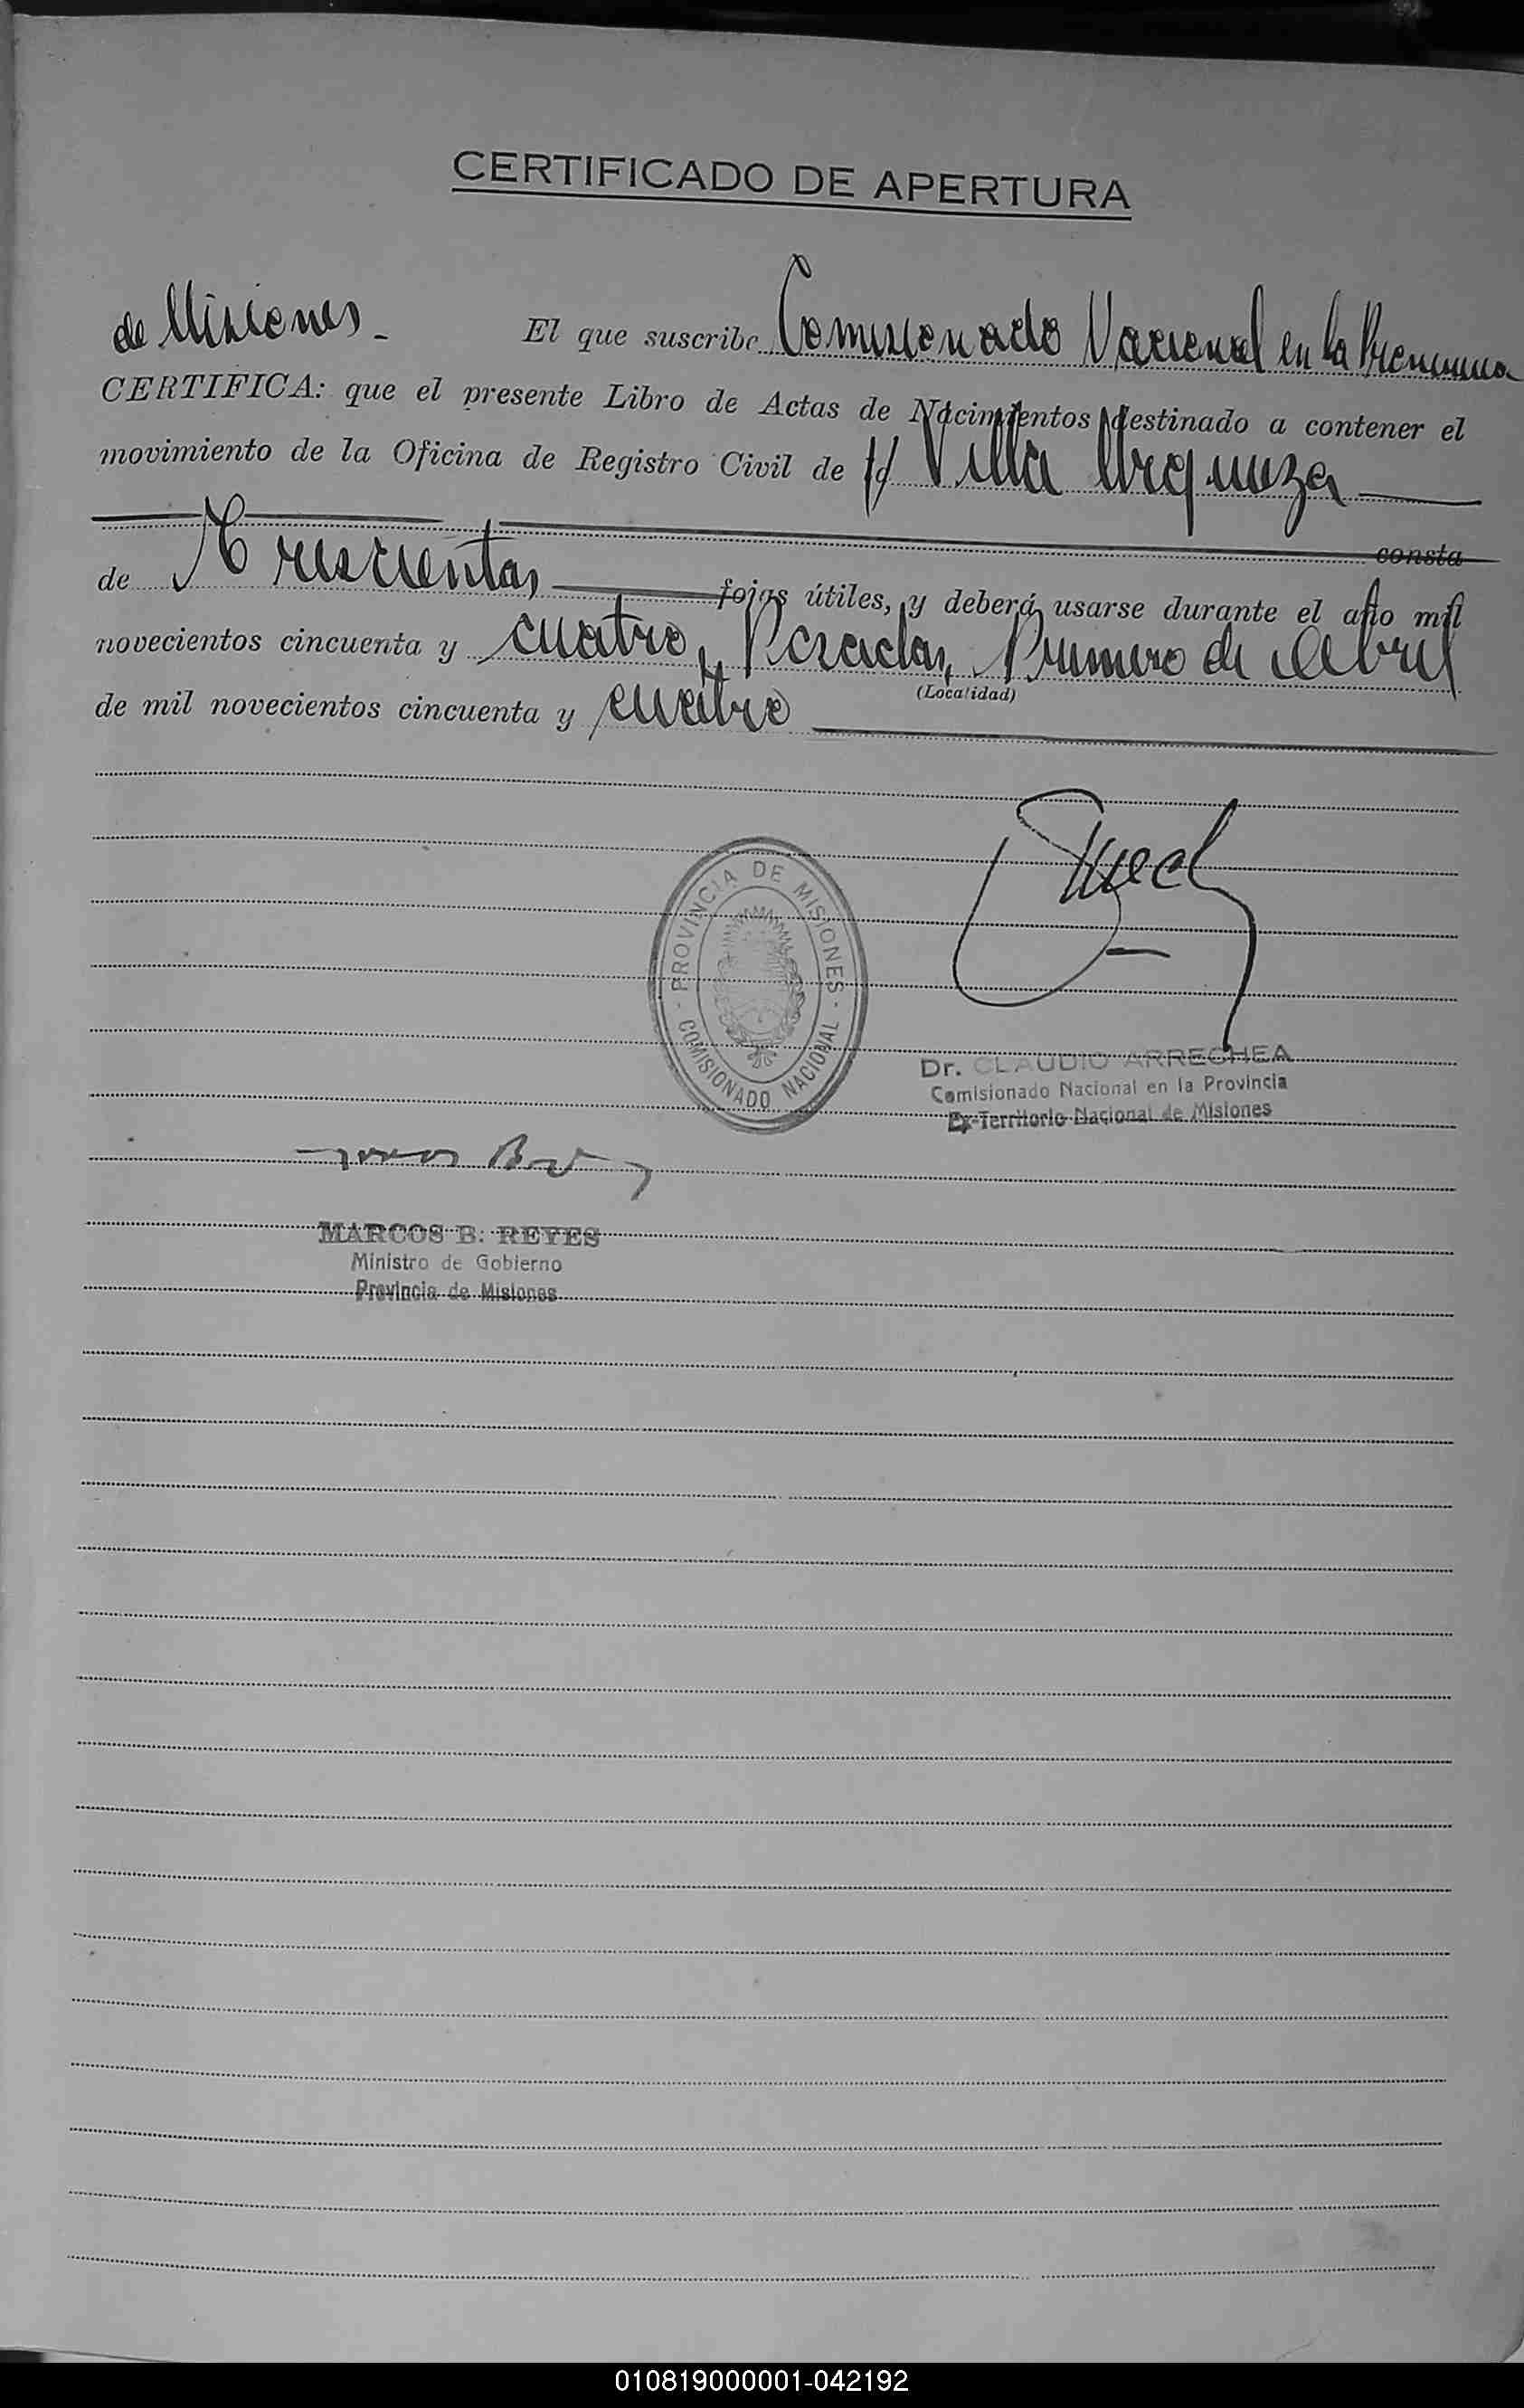 CERTIFICADO DE APERTURA
El que suscribe Comisionado Nacional en la Provincia
de Misiones.-
CERTIFICA: que el presente Libro de Actas de Nacimientos destinado a contener el
movimiento de la Oficina de Registro Civil de Villa Urquiza
consta
de Trescientas fojas útiles, y deberá usarse durante el año mil
novecientos cincuenta y cuatro, Posadas, Primero de Abril
(Localidad)
de mil novecientos cincuenta y cuatro
PROVINCIA DE MISIONES
- COMISIONADO NACIONAL -
Dr. CLAUDIO ARRECHEA
Comisionado Nacional en la Provincia
Ex-Territorio Nacional de Misiones
MARCOS B. REYES
Ministro de Gobierno
Provincia de Misiones
010819000001-042192